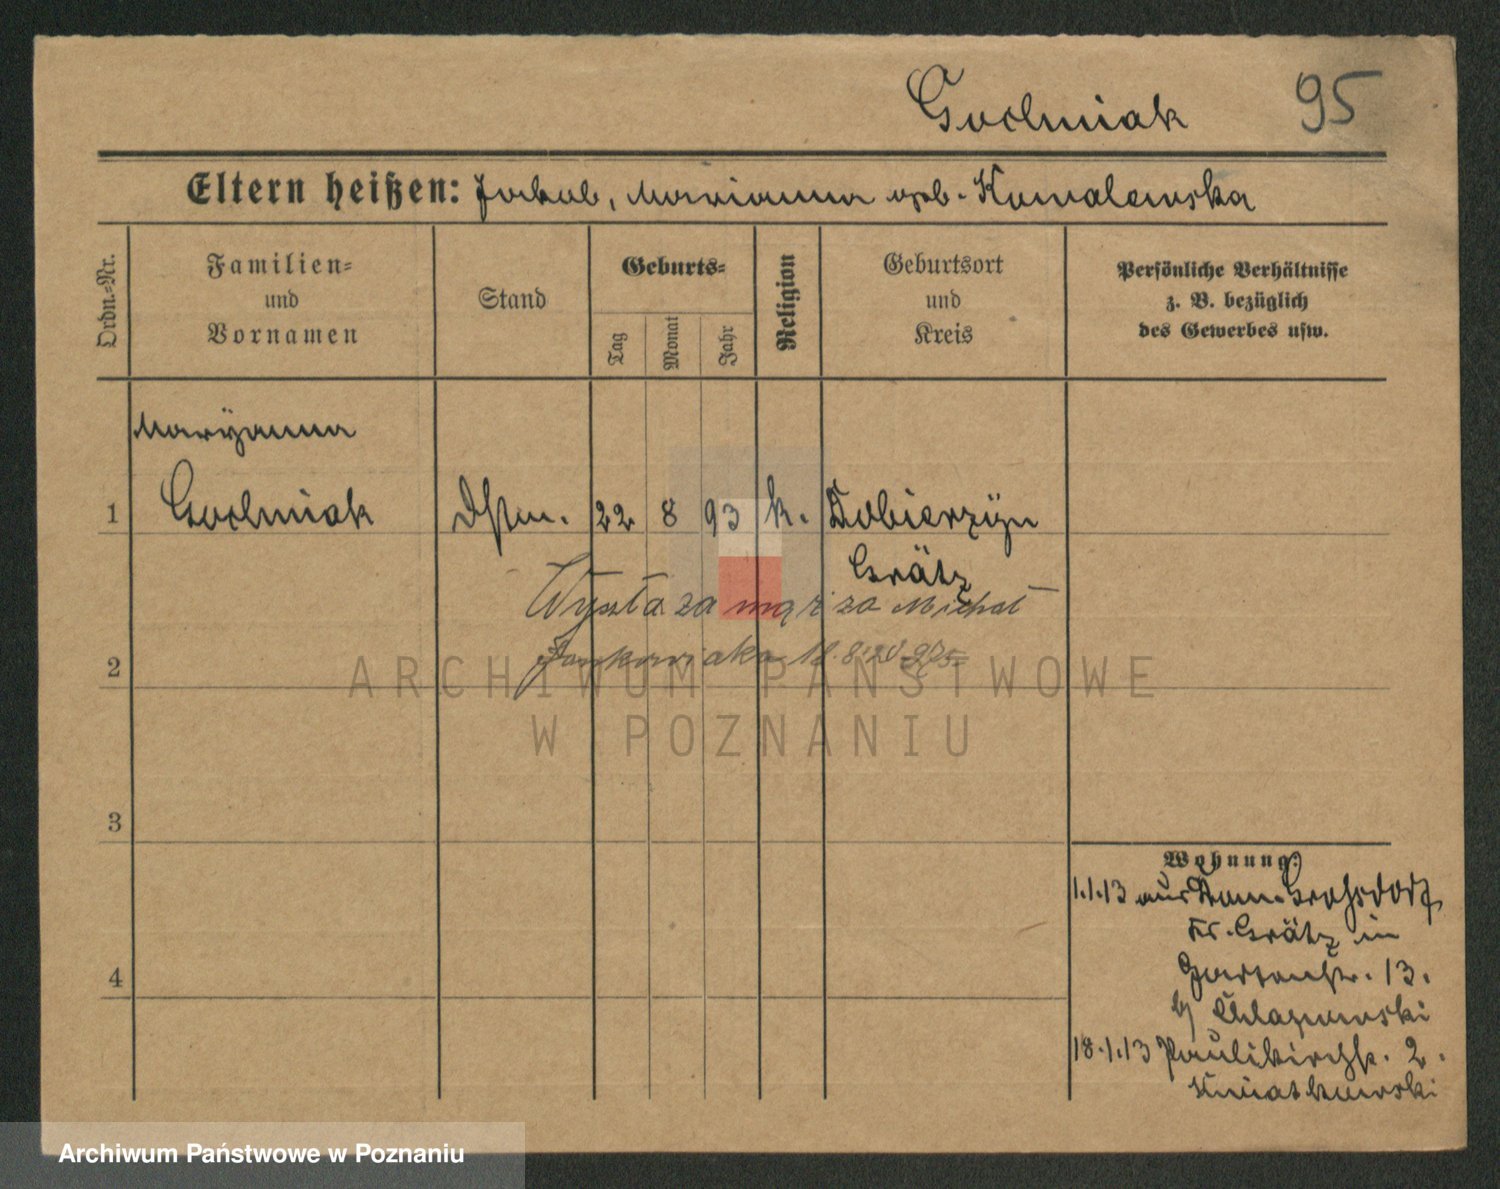 Goclmiak 95
Eltern heißen: Jakob, Marianna geb. Kowalewska
Ordn.-Nr.
Familien-
und
Vornamen
Stand
Geburts-
Tag
Monat
Jahr
Religion
Geburtsort
und
Kreis
Persönliche Verhältnisse
z. B. bezüglich
des Gewerbes usw.
Maryanna
1 Goclmiak Dstm. 22 8 93 k. Dobierzyn
Grätz
Wyszła za mąż za Michał
2 Jankowiaka
ARCHIWUM PAŃSTWOWE
W POZNANIU
3
Wohnung:
1.1.13 aus Dom. Grohsdorf
Kr. Grätz in
4 Gartenstr. 13.
b/ Chlapowski
18.1.13 Paulikirchstr. 2.
Kwiatkowski
Archiwum Państwowe w Poznaniu